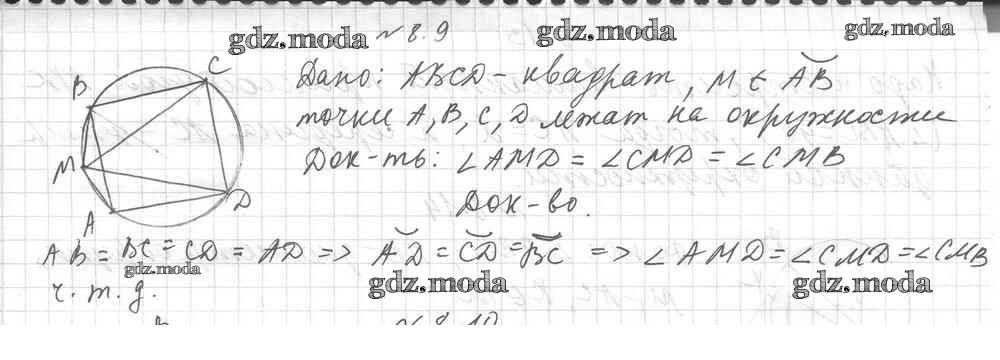 gdz.moda №8.9 gdz.moda gdz.moda
B C
M
A D
Дано: ABCD - квадрат, M ∈ AB
точки A, B, C, D лежат на окружности
Док-ть: ∠AMD = ∠CMD = ∠CMB
Док-во.
AB = BC = CD = AD => AD = CD = BC => ∠AMD = ∠CMD = ∠CMB
gdz.moda gdz.moda gdz.moda
ч.т.д.